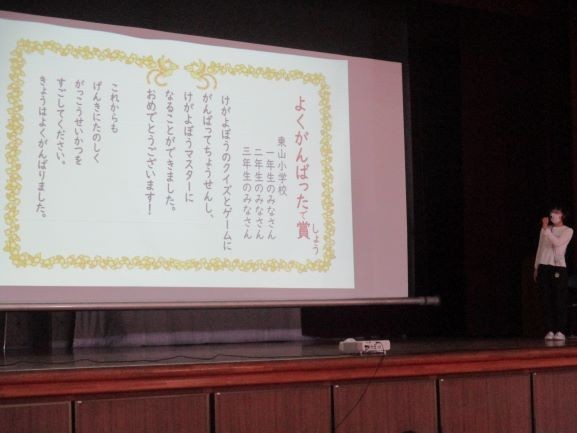 よくがんばったで賞
しょう
東山小学校
一年生のみなさん
二年生のみなさん
三年生のみなさん
けがよぼうのクイズとゲームに
がんばってちょうせんし、
けがよぼうマスターに
なることができました。
おめでとうございます!
これからも
げんきにたのしく
がっこうせいかつを
すごしてください。
きょうはよくがんばりました。